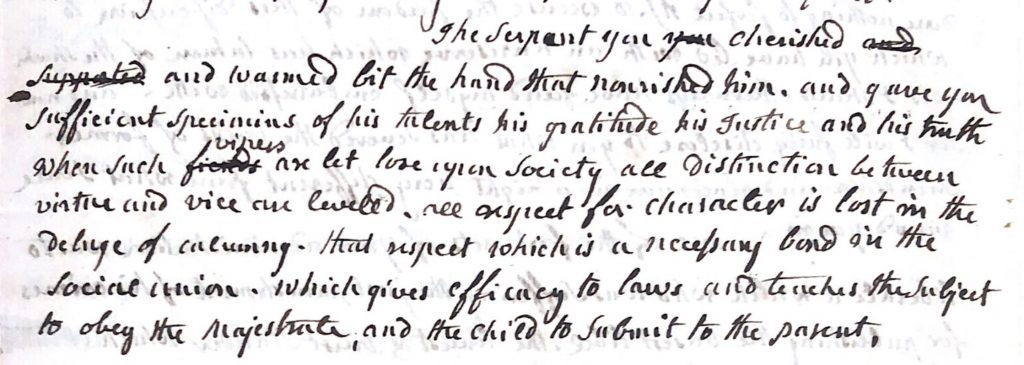 The Serpent you you cherished and
supported and warmed bit the hand that nourished him. and gave you
sufficient specimins of his talents his gratitude his Justice and his truth
vipers
when such fiends are let lose upon Society all Distinction between
virtue and vice are leveled. all respect for character is lost in the
Deluge of calumny. that respect which is a necessary bond in the
social union. which gives efficacy to laws and teaches the subject
to obey the Majestrate, and the child to submit to the parent,